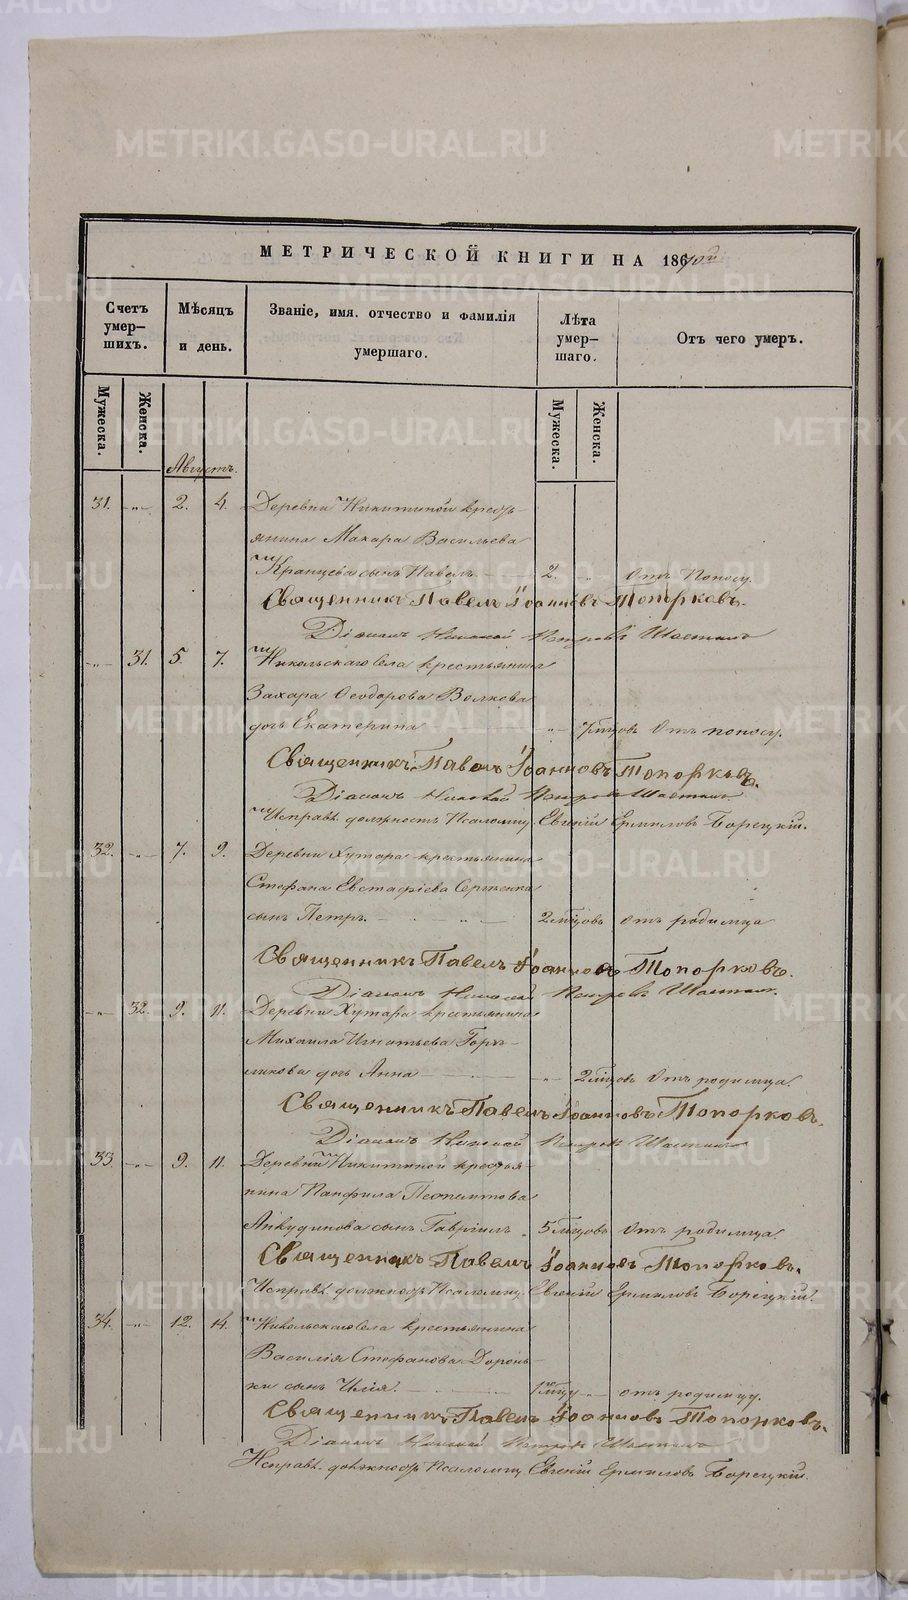 МЕТРИЧЕСКОЙ КНИГИ НА 1870й
Счетъ умер-шихъ.
Мѣсяцъ и день.
Званіе, имя, отчество и фамилія умершаго.
Лѣта умер-шаго.
Отъ чего умеръ.
Мужеска.
Женска.
Мужеска.
Женска.
Августъ.
31. -„- 2. 4. Деревни Никитиной кресть-
янина Макара Васильева
сынъ Павелъ 2. „ Отъ поносу.
Священникъ Павелъ Іоанновъ Топорковъ.
Діаконъ Николай Петровъ
-„- 31. 5. 7. Никольскаго села крестьянина
Захара Ѳеодорова Волкова
дочь Екатерина -„- 7 мѣцовъ Отъ поносу.
Священникъ Павелъ Іоанновъ Топорковъ.
Діаконъ Николай Петровъ
Исправл. должность Псаломщ. Евгеній Ермиловъ Борецкій.
32. -„- 7. 9. Деревни Хутора крестьянина
Стефана Евстафіева Сергѣенка
сынъ Петръ. 2 мѣцовъ Отъ родимца
Священникъ Павелъ Іоанновъ Топорковъ.
Діаконъ Николай Петровъ
-„- 32. 9. 11. Деревни Хутора крестьянина
Михаила Игнатьева Горе-
ликова дочь Анна -„- 2 мѣцовъ Отъ родимца.
Священникъ Павелъ Іоанновъ Топорковъ.
Діаконъ Николай Петровъ
33. -„- 9. 11. Деревни Никитиной крестья-
нина Панфила
Анкудинова сынъ Гавріилъ. 5 мѣцовъ Отъ родимца.
Священникъ Павелъ Іоанновъ Топорковъ.
Исправл. должность Псаломщ. Евгеній Ермиловъ Борецкій
34. -„- 12. 14. Никольскаго села крестьянина
Василія Стефанова Доронь-
ки сынъ Илія. 1го мѣцу -„- отъ родимцу.
Священникъ Павелъ Іоанновъ Топорковъ.
Діаконъ Николай Петровъ
Исправл. должность Псаломщ. Евгеній Ермиловъ Борецкій.
METRIKI.GASO-URAL.RU